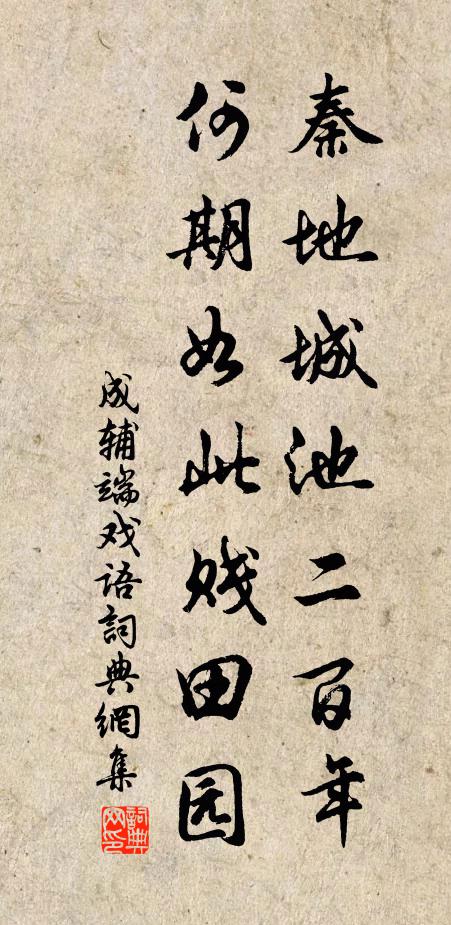 秦地城池二百年
何期如此贱田园
成辅端戏语詞典網集
詞典网印